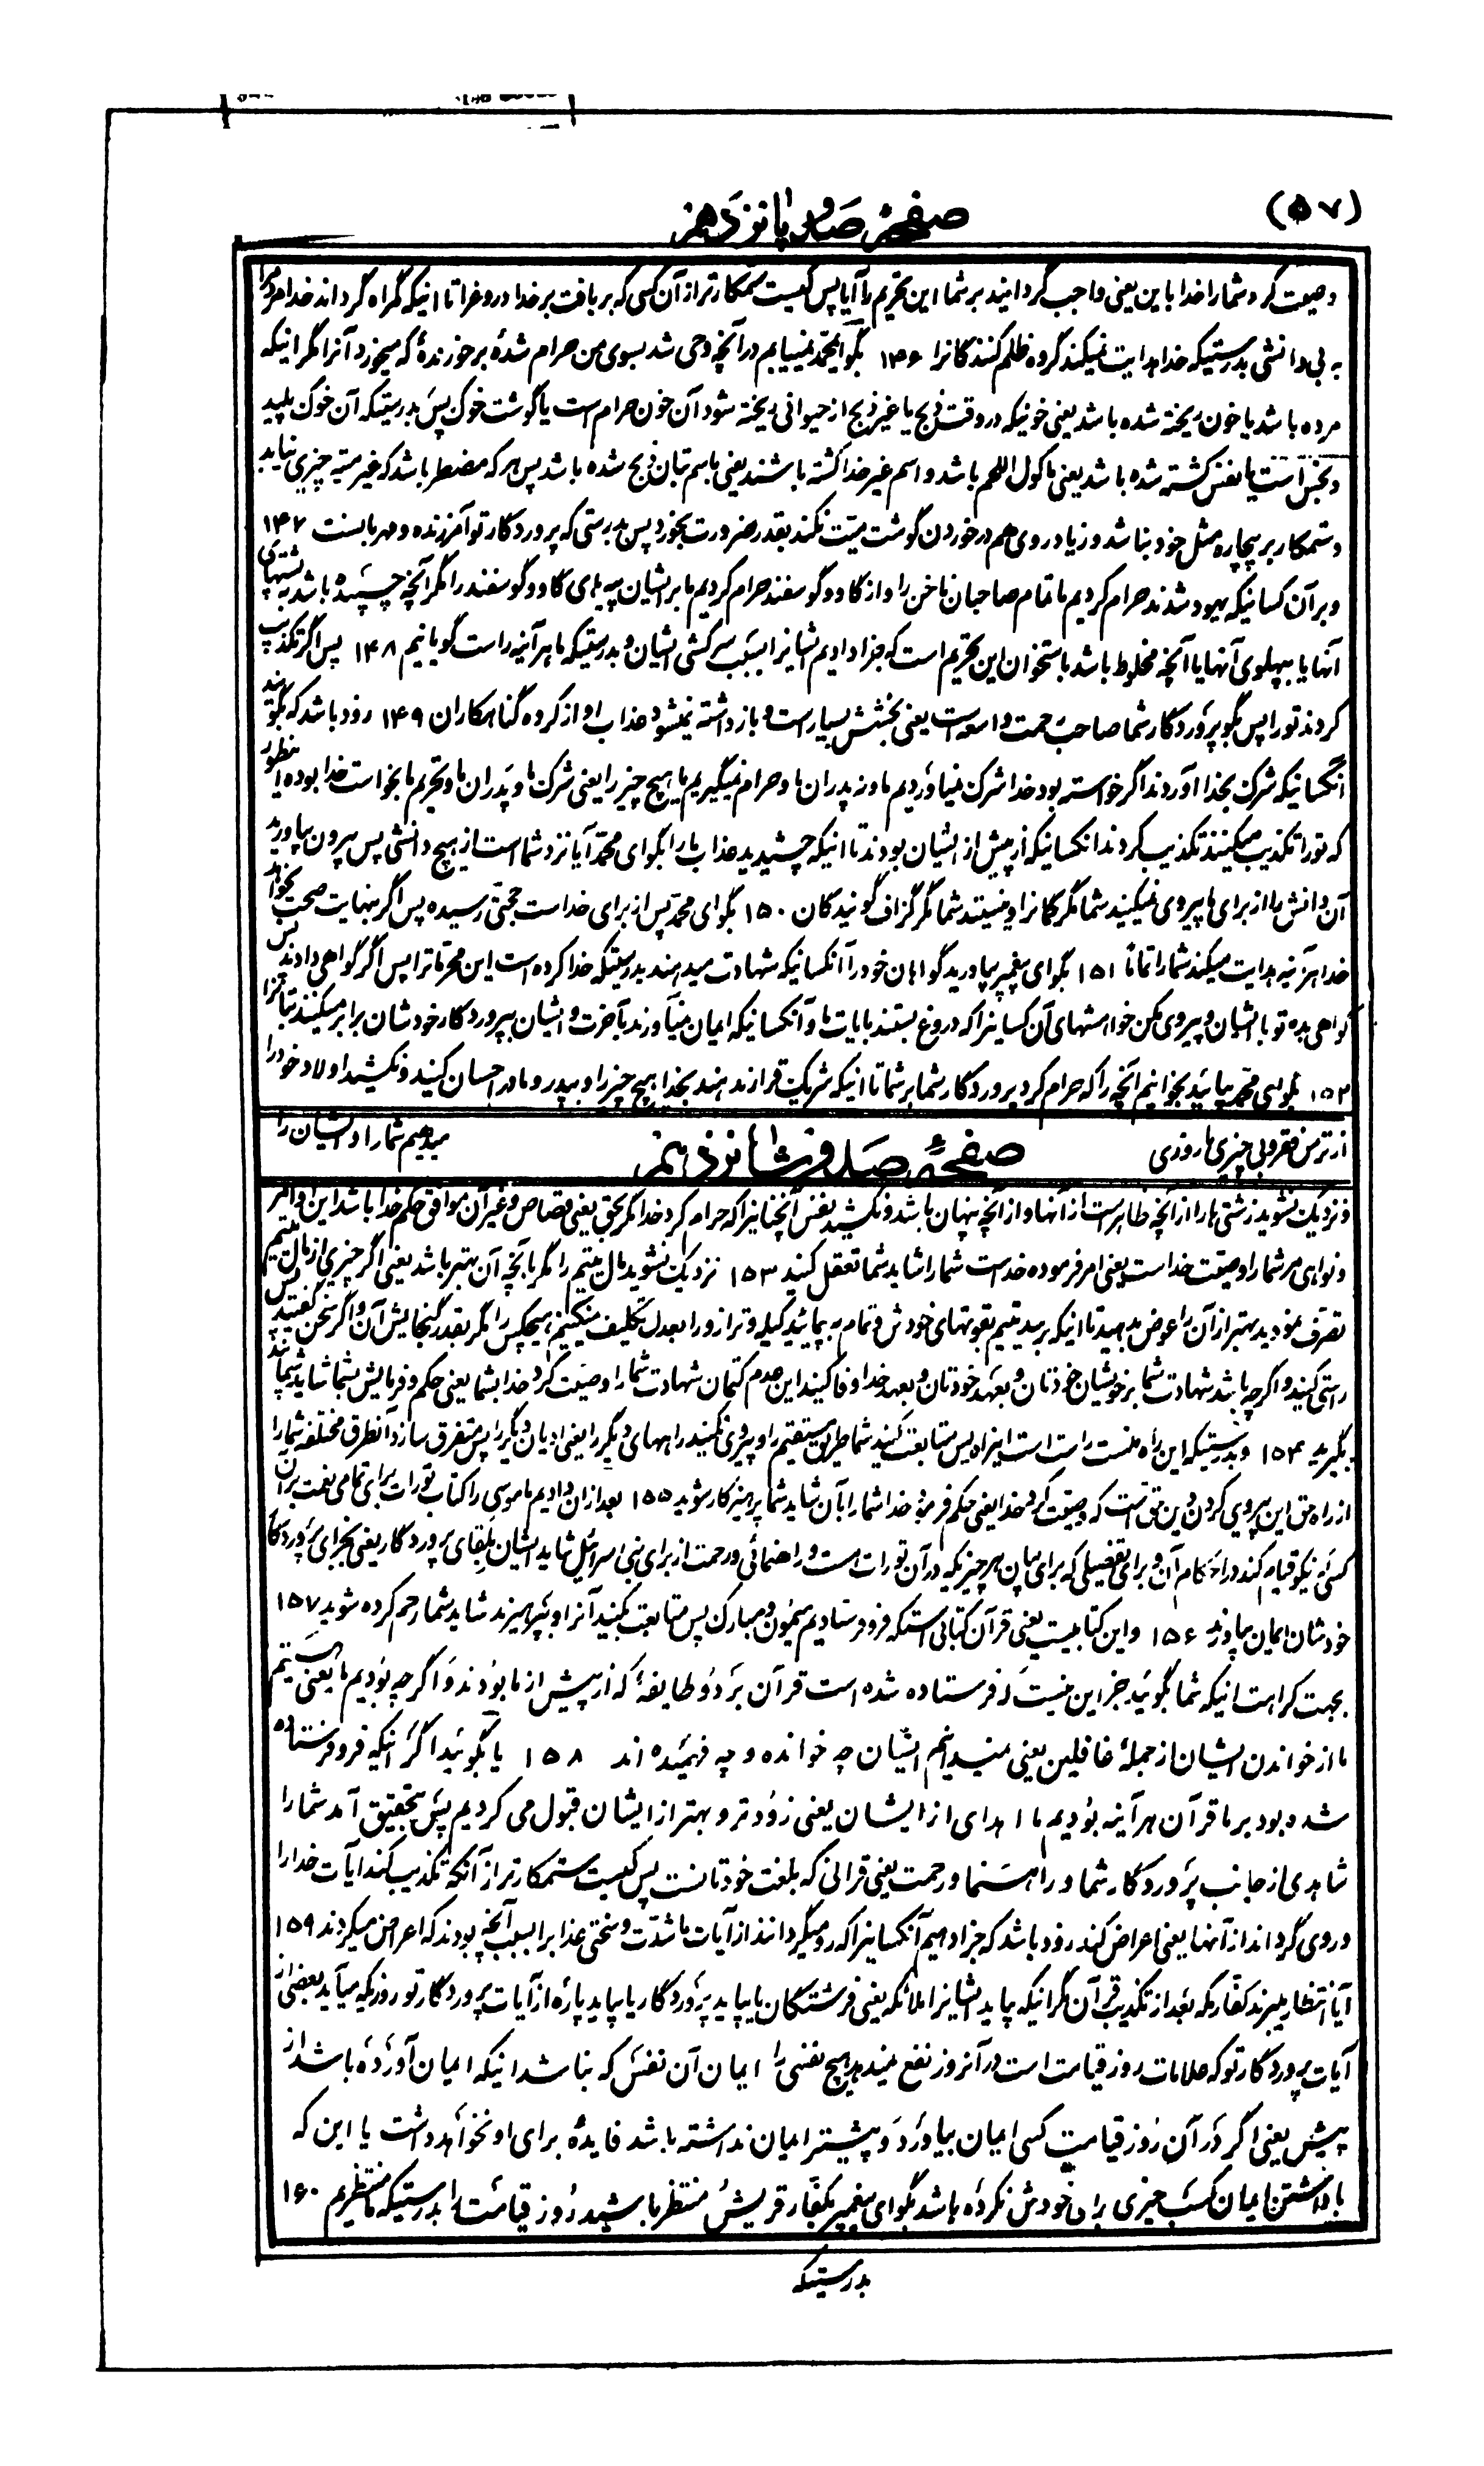 (۵۷)
صفحهٔ صد و پانزدهم
وصیت کرد شما را خدا باین یعنی واجب گردانید بر شما این تحریم را آیا پس کیست ستمکارتر از آن کسی که بر بافت بر خدا دروغرا تا اینکه گمراه گرداند خدا مردمرا
به بی دانشی بدرستیکه خدا هدایت نمیکند گروه ظلم کنندگانرا ۱۴۶ بگو ایمحمد نمییابم در آنچه وحی شد بسوی من حرام شدهٔ بر خورندهٔ که میخورد آنرا مگر اینکه
مرده باشد یا خون ریخته شده باشد یعنی خونیکه در وقت ذبح یا غیر ذبح از حیوانی ریخته شود آن خون حرام است یا گوشت خوک پس بدرستیکه آن خوک پلید
و نجس است یا نفس کشته شده باشد یعنی ماکول اللحم باشد و اسم غیر خدا کشته باشند یعنی باسم بتان ذبح شده باشد پس هر که مضطر باشد که غیر میته چیزی نیابد
و ستمکار بر بیچاره مثل خود نباشد و زیاد روی هم در خوردن گوشت میّت نکند بقدر ضرورت بخورد پس بدرستی که پروردگار تو آمرزنده و مهربانست ۱۴۷
و بر آن کسانیکه یهود شدند حرام کردیم ما تمام صاحبان ناخن را و از گاو و گوسفند حرام کردیم ما بر ایشان پیه های گاو و گوسفند را مگر آنچه چسپیده باشد به پشتهای
آنها یا بپهلوی آنها یا آنچه مخلوط باشد باستخوان این تحریم است که جزا دادیم ایشانرا بسبب سرکشی ایشان و بدرستیکه ما هر آینه راست گویانیم ۱۴۸ پس اگر تکذیب
کردند تو را پس بگو پروردگار شما صاحب رحمت واسعه است یعنی بخشش بسیار است و باز داشته نمیشود عذاب او از گروه گناهکاران ۱۴۹ زود باشد که بگویند
آنکسانیکه شرک بخدا آوردند اگر خواسته بود خدا شرک نمیآوردیم ما و نه پدران ما و حرام نمیگیریم ما هیچ چیز را یعنی شرک ما و پدران ما و تحریم ما بخواست خدا بوده اینطور
که تو را تکذیب میکنند تکذیب کردند آنکسانیکه از پیش از ایشان بودند تا اینکه چشیدید عذاب ما را بگو ای محمد آیا نزد شما است از هیچ دانشی پس بیرون بیاورید
آن دانش را از برای ما پیروی نمیکنید شما مگر گمانرا و نیستند شما مگر گزاف گویندگان ۱۵۰ بگو ای محمد پس از برای خداست حجتی رسیده پس اگر بنهایت صحت بخواهد
خدا هر آینه هدایت میکند شما را تمامًا ۱۵۱ بگو ای پیغمبر بیاورید گواهان خود را آنکسانیکه شهادت میدهند بدرستیکه خدا کرده است این محرماترا پس اگر گواهی دادند پس
گواهی مده تو با ایشان و پیروی مکن خواهشهای آن کسانیرا که دروغ بستند بایات ما و آنکسانیکه ایمان نمیآورند بآخرت و ایشان بپروردگار خودشان برابر میکنند بتانرا
۱۵۲ بگو ای محمد بیائید بخوانیم آنچه را که حرام کرد پروردگار شما بر شما تا اینکه شریک قرار ندهند بخدا هیچ چیز را و بپدر و مادر احسان کنید و نکشید اولاد خود را
از ترس فقر و بی چیزی ما روزی میدهیم شما را و ایشان را
صفحهٔ صد و شانزدهم
و نزدیک نشوید زشتی ها را از آنچه ظاهر است از آنها و از آنچه پنهان باشد و نکشید نفس آنچنانیرا که حرام کرد خدا مگر بحق یعنی قصاص و غیر آن موافق حکم خدا باشد این اوامر
و نواهی مر شما را وصیّت خداست یعنی امر فرموده خداست شما را شاید شما تعقل کنید ۱۵۳ نزدیک نشوید مال یتیم را مگر بآنچه آن بهتر باشد یعنی اگر چیزی از مال یتیم
تصرف نمودید بهتر از آن را عوض بدهید تا اینکه برسد یتیم بقوتهای خودش و تمام به پیمائید کیله و ترازو را بعدل تکلیف نمیکنیم هیچکس را مگر بقدر گنجایش آن و اگر سخن گفتید پس
راستی کنید و اگر چه باشد شهادت شما بر خویشان خودتان و بعهد خودتان و بعهد خدا وفا کنید این عدم کتمان شهادت شما را وصیّت کرد خدا بشما یعنی حکم و فرمایش بشما شاید شما پند
بگیرید ۱۵۴ و بدرستیکه این راه منست راست است این راه پس متابعت کنید شما طریق مستقیم را و پیروی نکنید راههای دیگر را یعنی ادیان دیگر را پس متفرق سازد آنطرق مختلفه شما را
از راه حق این پیروی کردن دین حق است که وصیّت کرد خدا یعنی حکم فرمود خدا شما را بآن شاید شما پرهیزکار شوید ۱۵۵ بعد از آن دادیم ما موسی را کتاب تورات برای تمامی نعمت بر آن
کسی نیکو قیام کند در احکام آن و برای تفصیلی که برای بیان هر چیزیکه در آن تورات است و راهنمائی و رحمت از برای بنی اسرائیل شاید ایشان بلقای پروردگار یعنی بجزای پروردگار
خودشان ایمان بیاورند ۱۵۶ و این کتابیست یعنی قرآن کتابی استکه فرو فرستادیم میمون و مبارک پس متابعت بکنید آنرا و بپرهیزند شاید شما رحم کرده شوید ۱۵۷
بجهت کراهت اینکه شما بگوئید جز این نیست که فرستاده شده است قرآن بر دو طایفهٔ که از پیش از ما بودند و اگر چه بودیم ما یعنی هستیم
ما از خواندن ایشان از جملهٔ غافلین یعنی نمیدانیم ایشان چه خوانده و چه فهمیده اند ۱۵۸ یا بگوئید اگر اینکه فرو فرستاده
شده بود بر ما قرآن هر آینه بودیم ما اهدای از ایشان یعنی زودتر و بهتر از ایشان قبول می کردیم پس بتحقیق آمد شما را
شاهدی از جانب پروردگار شما و راهنما و رحمت یعنی قرانی که بلغت خودتانست پس کیست ستمکارتر از آنکه تکذیب کند آیات خدا را
و روی گرداند از آنها یعنی اعراض کند زود باشد که جزا دهیم آنکسانیرا که رو میگردانند از آیات ما شدّت و سختی عذابرا بسبب آنچه بودند که اعراض میکردند ۱۵۹
آیا انتظار میبرند کفار مکه بعد از تکذیب قرآن مگر اینکه بیاید ایشانرا ملائکه یعنی فرشتگان یا بیاید پروردگار یا بیاید پارهٔ از آیات پروردگار تو روزیکه میآید بعضی از
آیات پروردگار تو که علامات روز قیامت است در آنروز نفع نمیدهد هیچ نفسی را ایمان آن نفسی که نباشد اینکه ایمان آورده باشد از
پیش یعنی اگر در آن روز قیامت کسی ایمان بیاورد و پیشتر ایمان نداشته باشد فایدهٔ برای او نخواهد داشت یا این که
با داشتن ایمان کسب خیری برای خودش نکرده باشد بگو ای پیغمبر بکفار قریش منتظر باشید روز قیامت را بدرستیکه ما منتظریم ۱۶۰
بدرستیکه